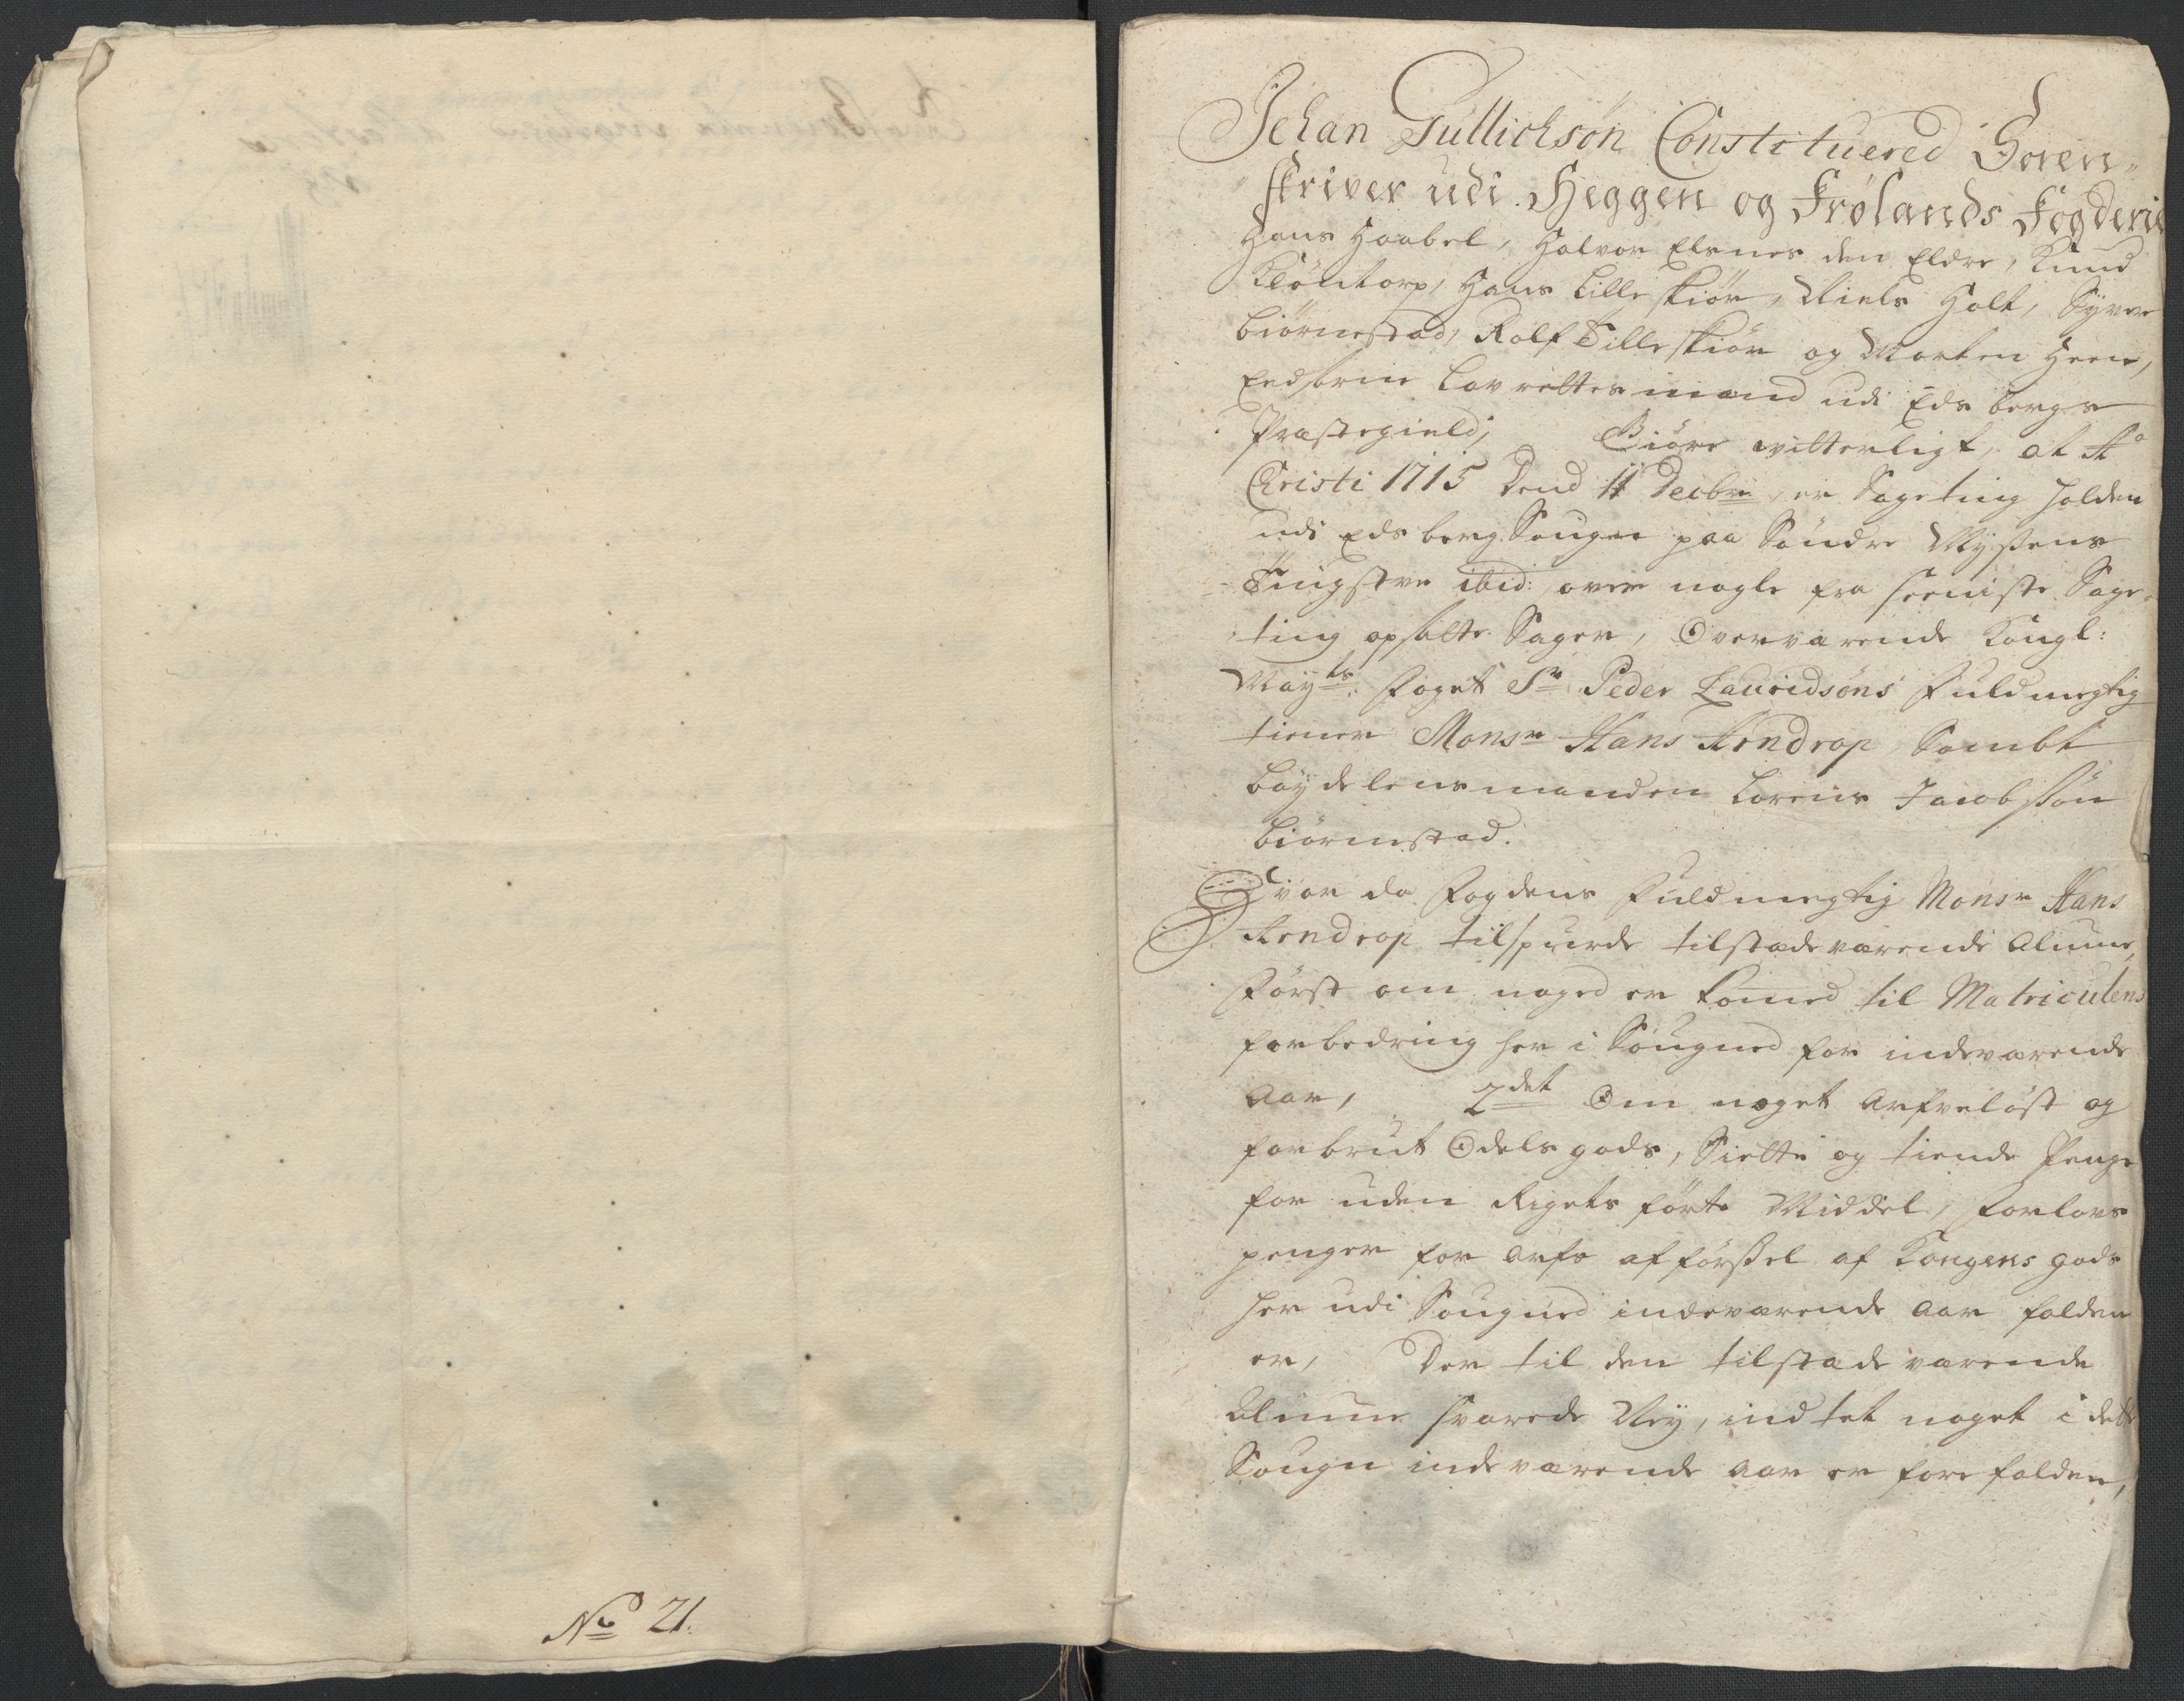 No 21.
Jehan Gullichsøn Constituered Soren-
skriver udi Heggen og Frølands Fogderie
Hans Haabel, Halvor Elsnes den Eldre, Knud
Kløntorp, Hans Lilleskiør, Niels Holt, Syver
Biørnestad, Rolf Lilleskiør og Morten Heen,
Edsorne Lavrettesmænd udi Edsbergs
Præstegield, Giøre vitterligt, at Ao
Christi 1715 Dend 11 Decbr, er Sageting holden
udi Edsberg Sougn paa Søndre Mysens
Tingstve ibid: over nogle fra seeniste Sage-
ting opsatte Sager, Overværende Kongl:
Mayts: Foget Sr Peder Lauridsøns Fuldmegtig
tiener Monsr Hans Arndrop Sambt
Bøydelensmanden Lorens Jacobsøn
Biørnestad.
Hvor da Fogdens Fuldmegtig Monsr Hans
Arndrop tilspurde tilstædeværende Almue,
Først om noged er komed til Matriculens
forbedring her i Sougned for indeværende
Aar, 2det Om noget Arfveløst og
forbrut Odelsgods, Siette og tiende Penge
for uden Rigets førte Middel, Forlovs
penger for Arfs afførsel af Kongens gods
her udi Sougned indeværende Aar falden
er, Der til den tilstædeværende
Almue svarede Ney, indtet noget i dette
Sougn indeværende Aar er forefalden,